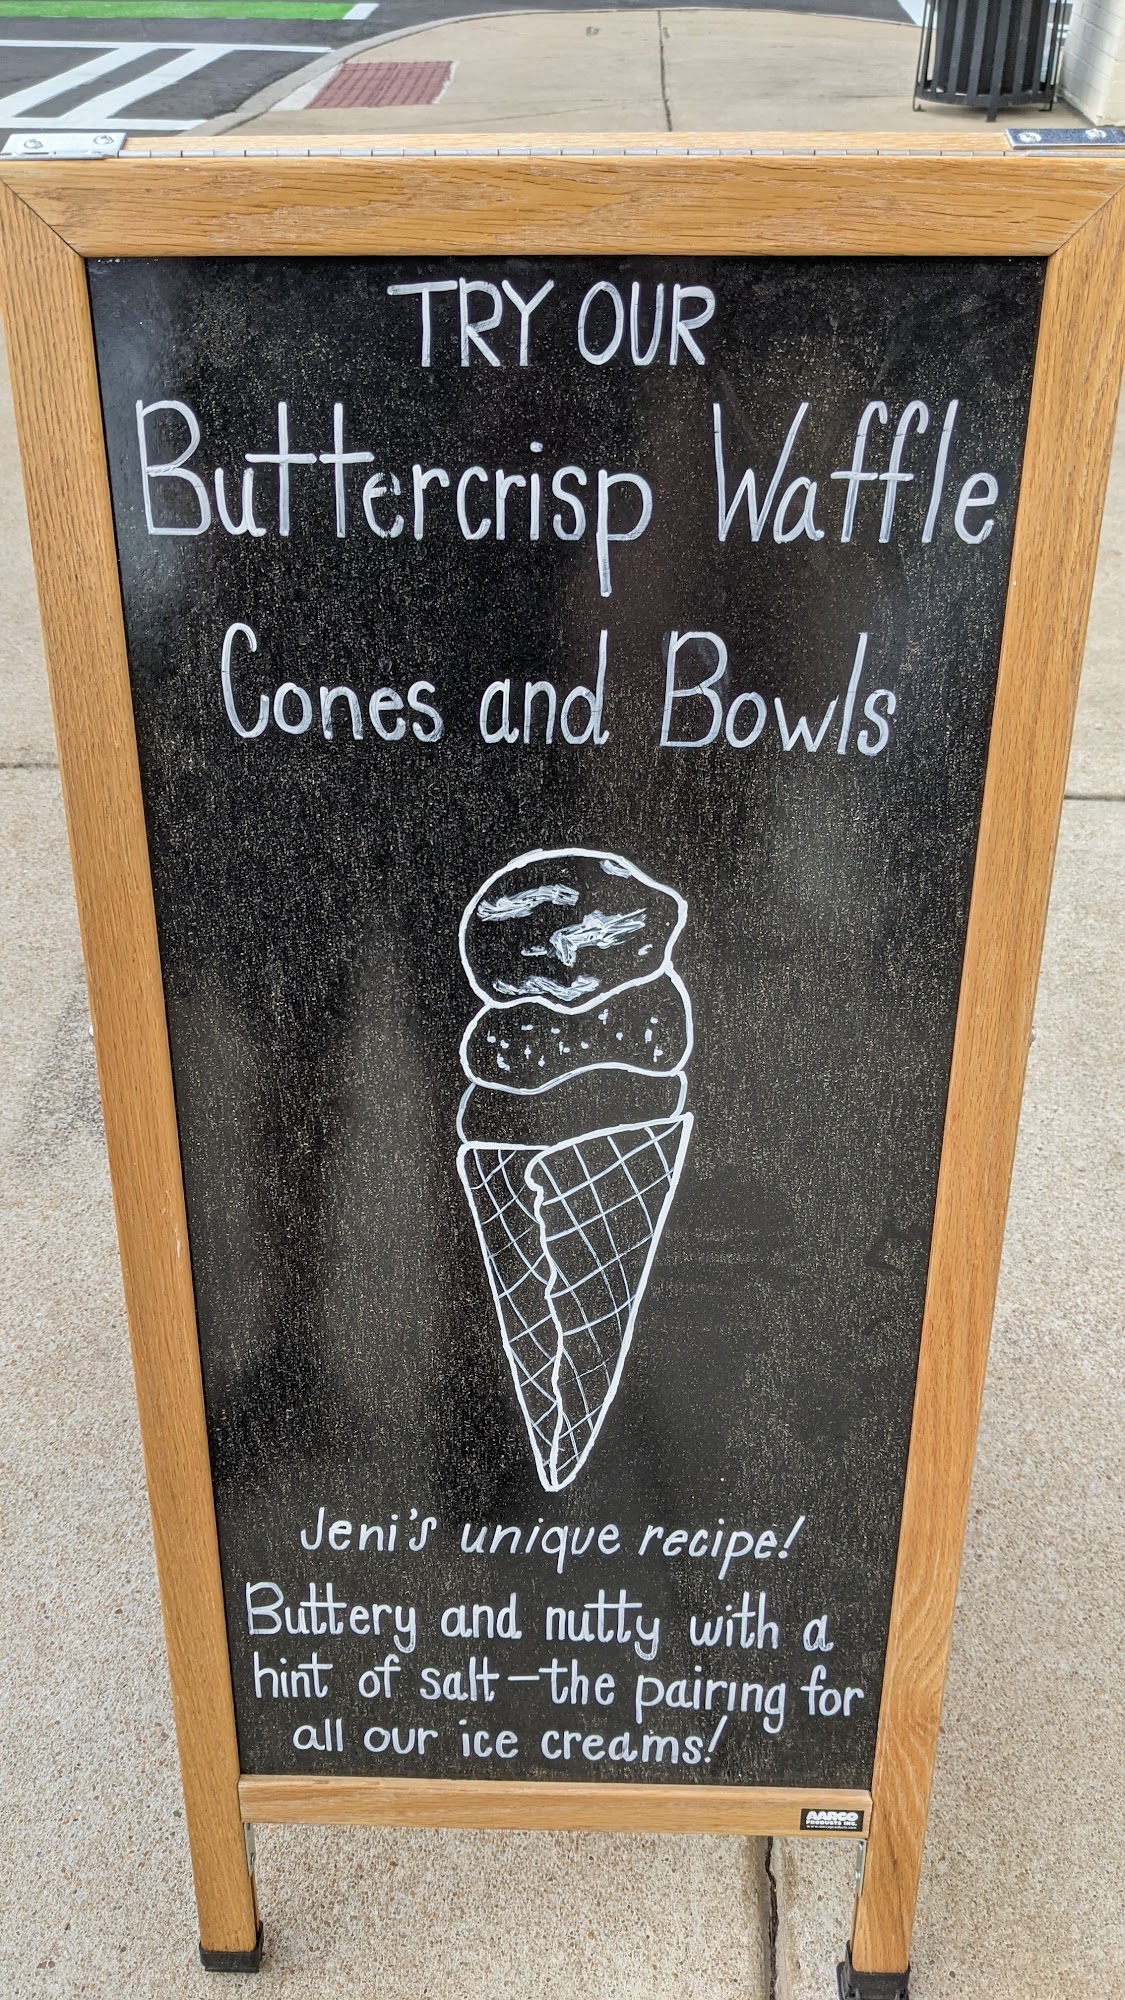 TRY OUR
Buttercrisp Waffle
Cones and Bowls
Jeni's unique recipe!
Buttery and nutty with a
hint of salt—the pairing for
all our ice creams!
AARCO
PRODUCTS INC.